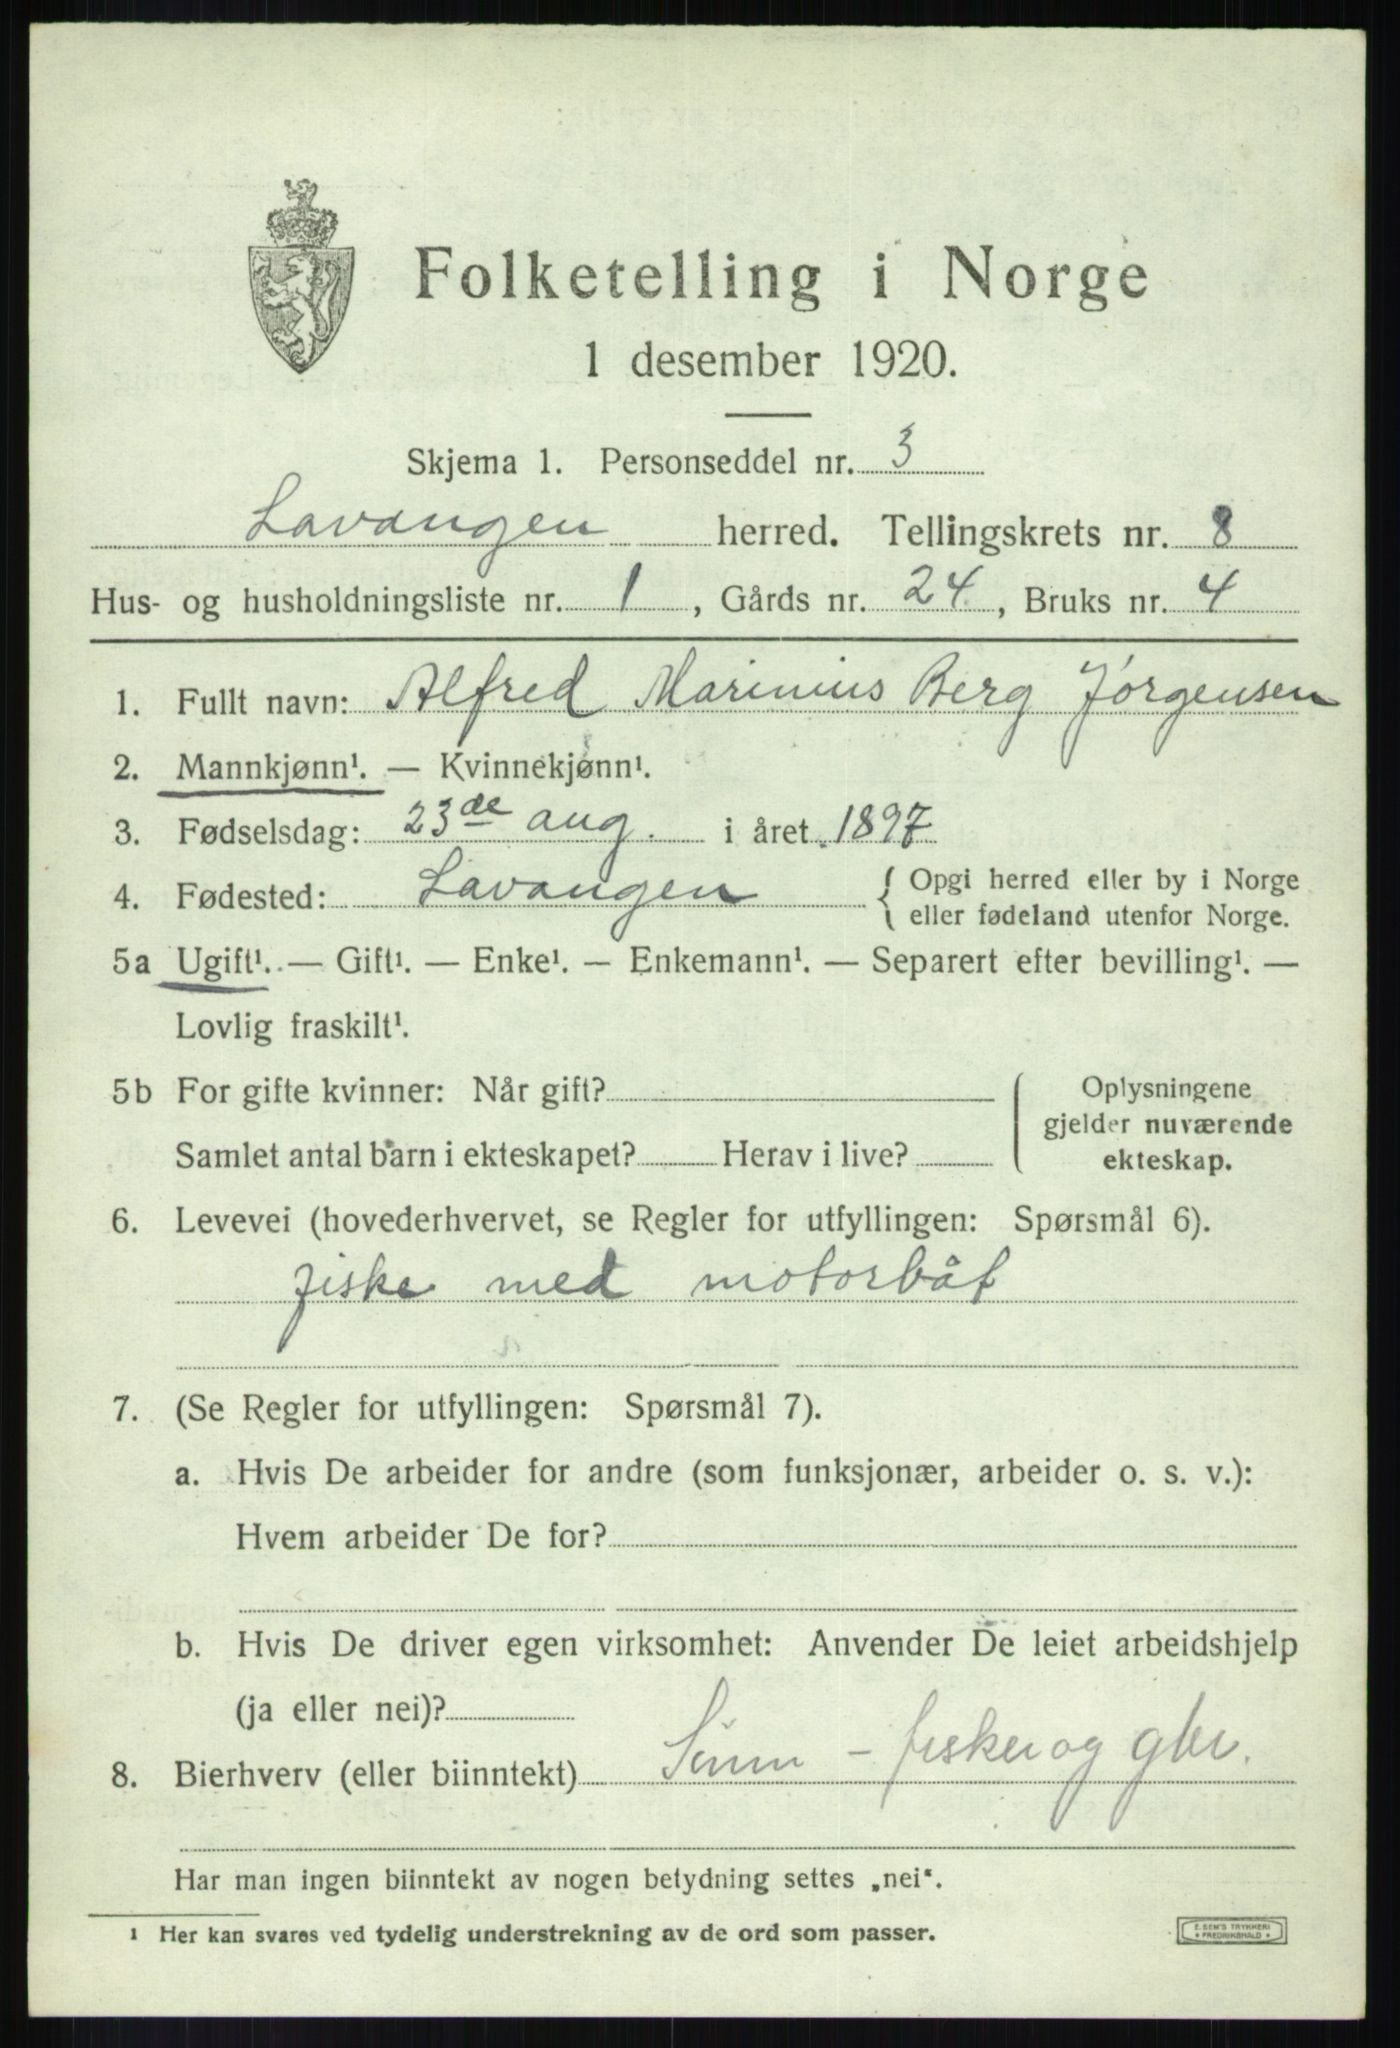 Folketelling i Norge
1 desember 1920.
Skjema 1. Personseddel nr. 3
Lavangen herred. Tellingskrets nr. 8
Hus- og husholdningsliste nr. 1, Gårds nr. 24, Bruks nr. 4
1. Fullt navn: Alfred Marinius Berg Jørgensen
2. Mannkjønn¹. — Kvinnekjønn¹.
3. Fødselsdag: 23de aug. i året 1897
4. Fødested: Lavangen { Opgi herred eller by i Norge
eller fødeland utenfor Norge.
5a Ugift¹. — Gift¹. — Enke¹. — Enkemann¹. — Separert efter bevilling¹. —
Lovlig fraskilt¹.
5b For gifte kvinner: Når gift?
Samlet antal barn i ekteskapet? Herav i live?
Oplysningene
gjelder nuværende
ekteskap.
6. Levevei (hovederhvervet, se Regler for utfyllingen: Spørsmål 6).
fiske med motorbåt
7. (Se Regler for utfyllingen: Spørsmål 7).
a. Hvis De arbeider for andre (som funksjonær, arbeider o. s. v.):
Hvem arbeider De for?
b. Hvis De driver egen virksomhet: Anvender De leiet arbeidshjelp
(ja eller nei)?
8. Bierhverv (eller biinntekt) – fisker og gbr.
Har man ingen biinntekt av nogen betydning settes „nei“.
1 Her kan svares ved tydelig understrekning av de ord som passer.
E. SEM'S TRYKKERI
FREDRIKSHALD